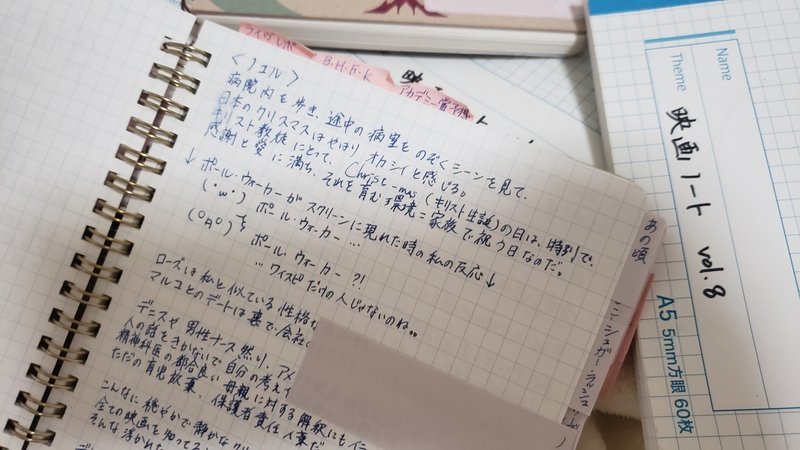 ライヴレポ
B.H.F.K
アカデミー賞予想
〈ノエル〉
病院内を歩き、途中の病室をのぞくシーンを見て、
日本のクリスマスはやはりオカシイと感じる。
キリスト教徒にとって、Christ-mas(キリスト生誕)の日は、特別で、
感謝と愛に満ち、それを育む環境=家族で祝う日なのだ。
↓ポール・ウォーカーがスクリーンに現れた時の私の反応↓
(・ω・) ポール・ウォーカー…
ポール・ウォーカー?!
…ワイスピだけの人じゃないのね。。
ローズは私と似ている性格
マルコとのデートは裏で、会社
デニスや男性ナース然り、アメ
人の話をきかないで自分の考え
精神科医の都合良い母親に対する解釈にもイラ
ただの育児放棄、保護者責任
こんなに穏やかで静かなクリ
全ての映画を知ってる
そんな浮かれた
あの頃
シュガー・ラッシュ
Name
Theme
映画ノート vol.8
A5 5mm方眼 60枚